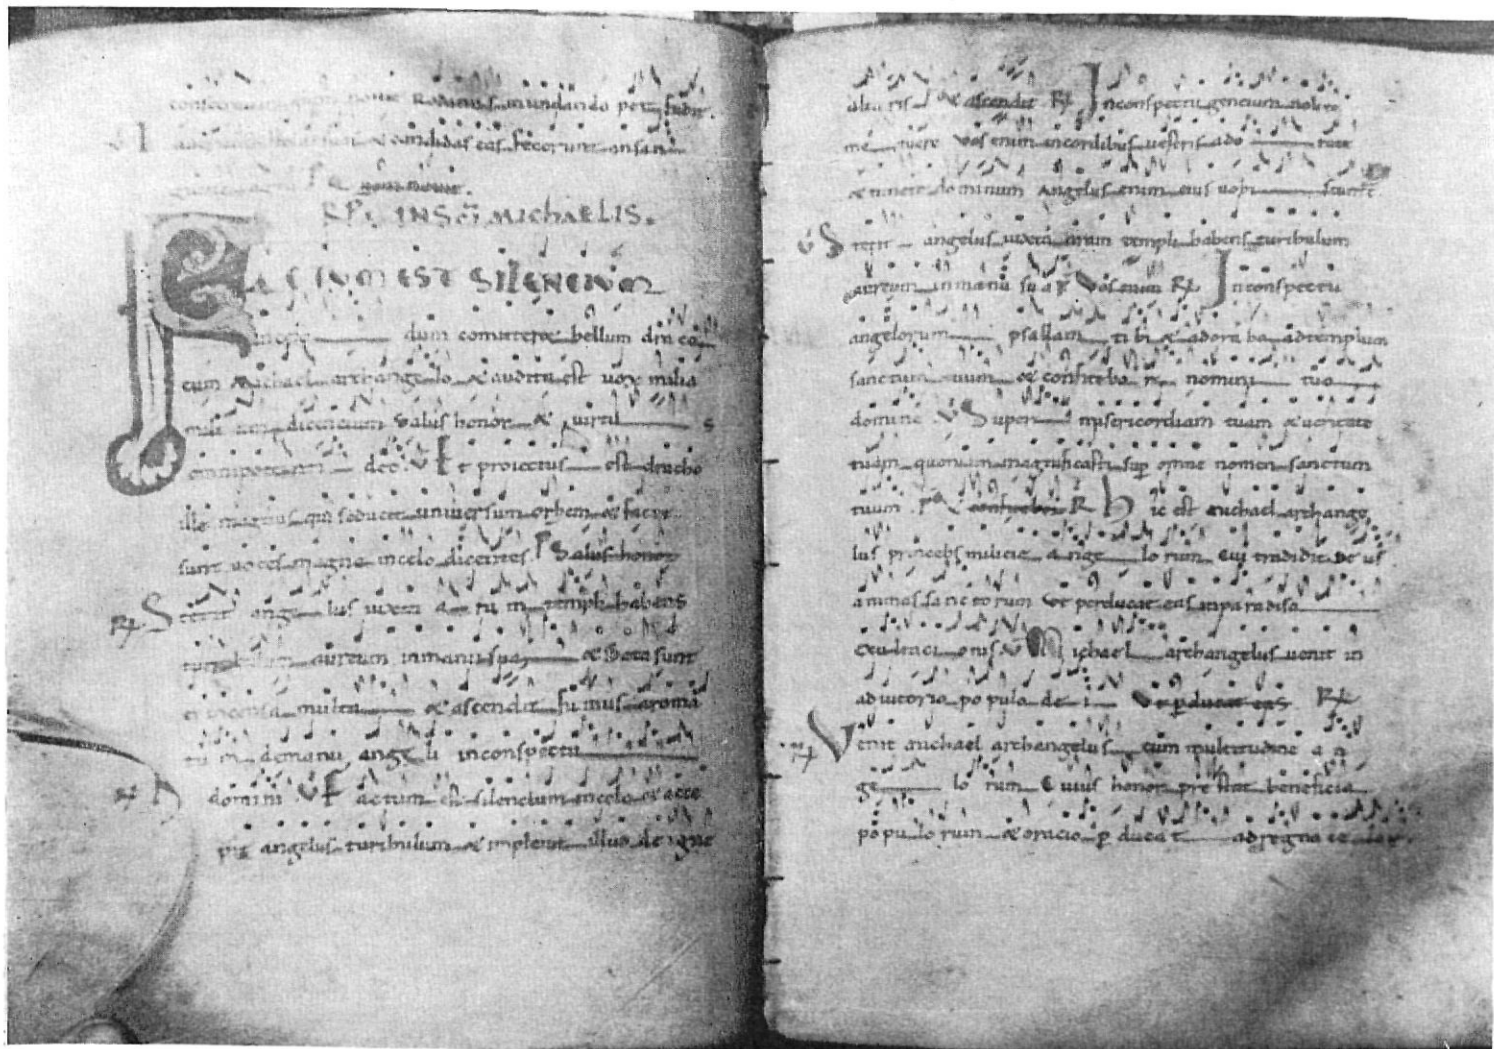 novit mundando per
candidas eas fecerunt in san
RP. IN SCI MICHAELIS.
FACTUM EST SILENCIUM
in celo dum comitteret bellum draco
cum Michael archangelo & audita est vox milia
milium dicencium Salus honor & virtus
omnipotenti deo V Et proiectus est dracho
ille magnus qui seducit universum orbem & facte
sunt voces magne in celo dicentes P Salus honor
R Stetit angelus iuxta aram templi habens
turibulum aureum in manu sua & data sunt
ei incensa multa & ascendit fumus aroma
tum de manu angeli in conspectu
domini V Factum est silencium in celo & acce
pit angelus turibulum & implevit illud de igne
altaris P & ascendit R In conspectu gencium nolite
metuere vos enim in cordibus vestris ado rate
& timete dominum Angelus enim eius vobi scum est
V Stetit angelus iuxta aram templi habens turibulum
aureum in manu sua P Vos enim R In conspectu
angelorum psallam tibi & adorabo ad templum
sanctum tuum & confitebor nomini tuo
domine V Super misericordiam tuam & veritate
tuam quoniam magnificasti sup omne nomen sanctum
tuum P & confitebor R Hic est michael archange
lus princeps milicie angelorum cui tradidit deus
animas sanctorum Ut perducat eas in paradiso
exultacionis V Michael archangelus venit in
adiutorio populo dei Ut pducat eas R
R Venit michael archangelus cum multitudine an
gelorum Cuius honor prestat beneficia
populorum & oracio pducat ad regna celor